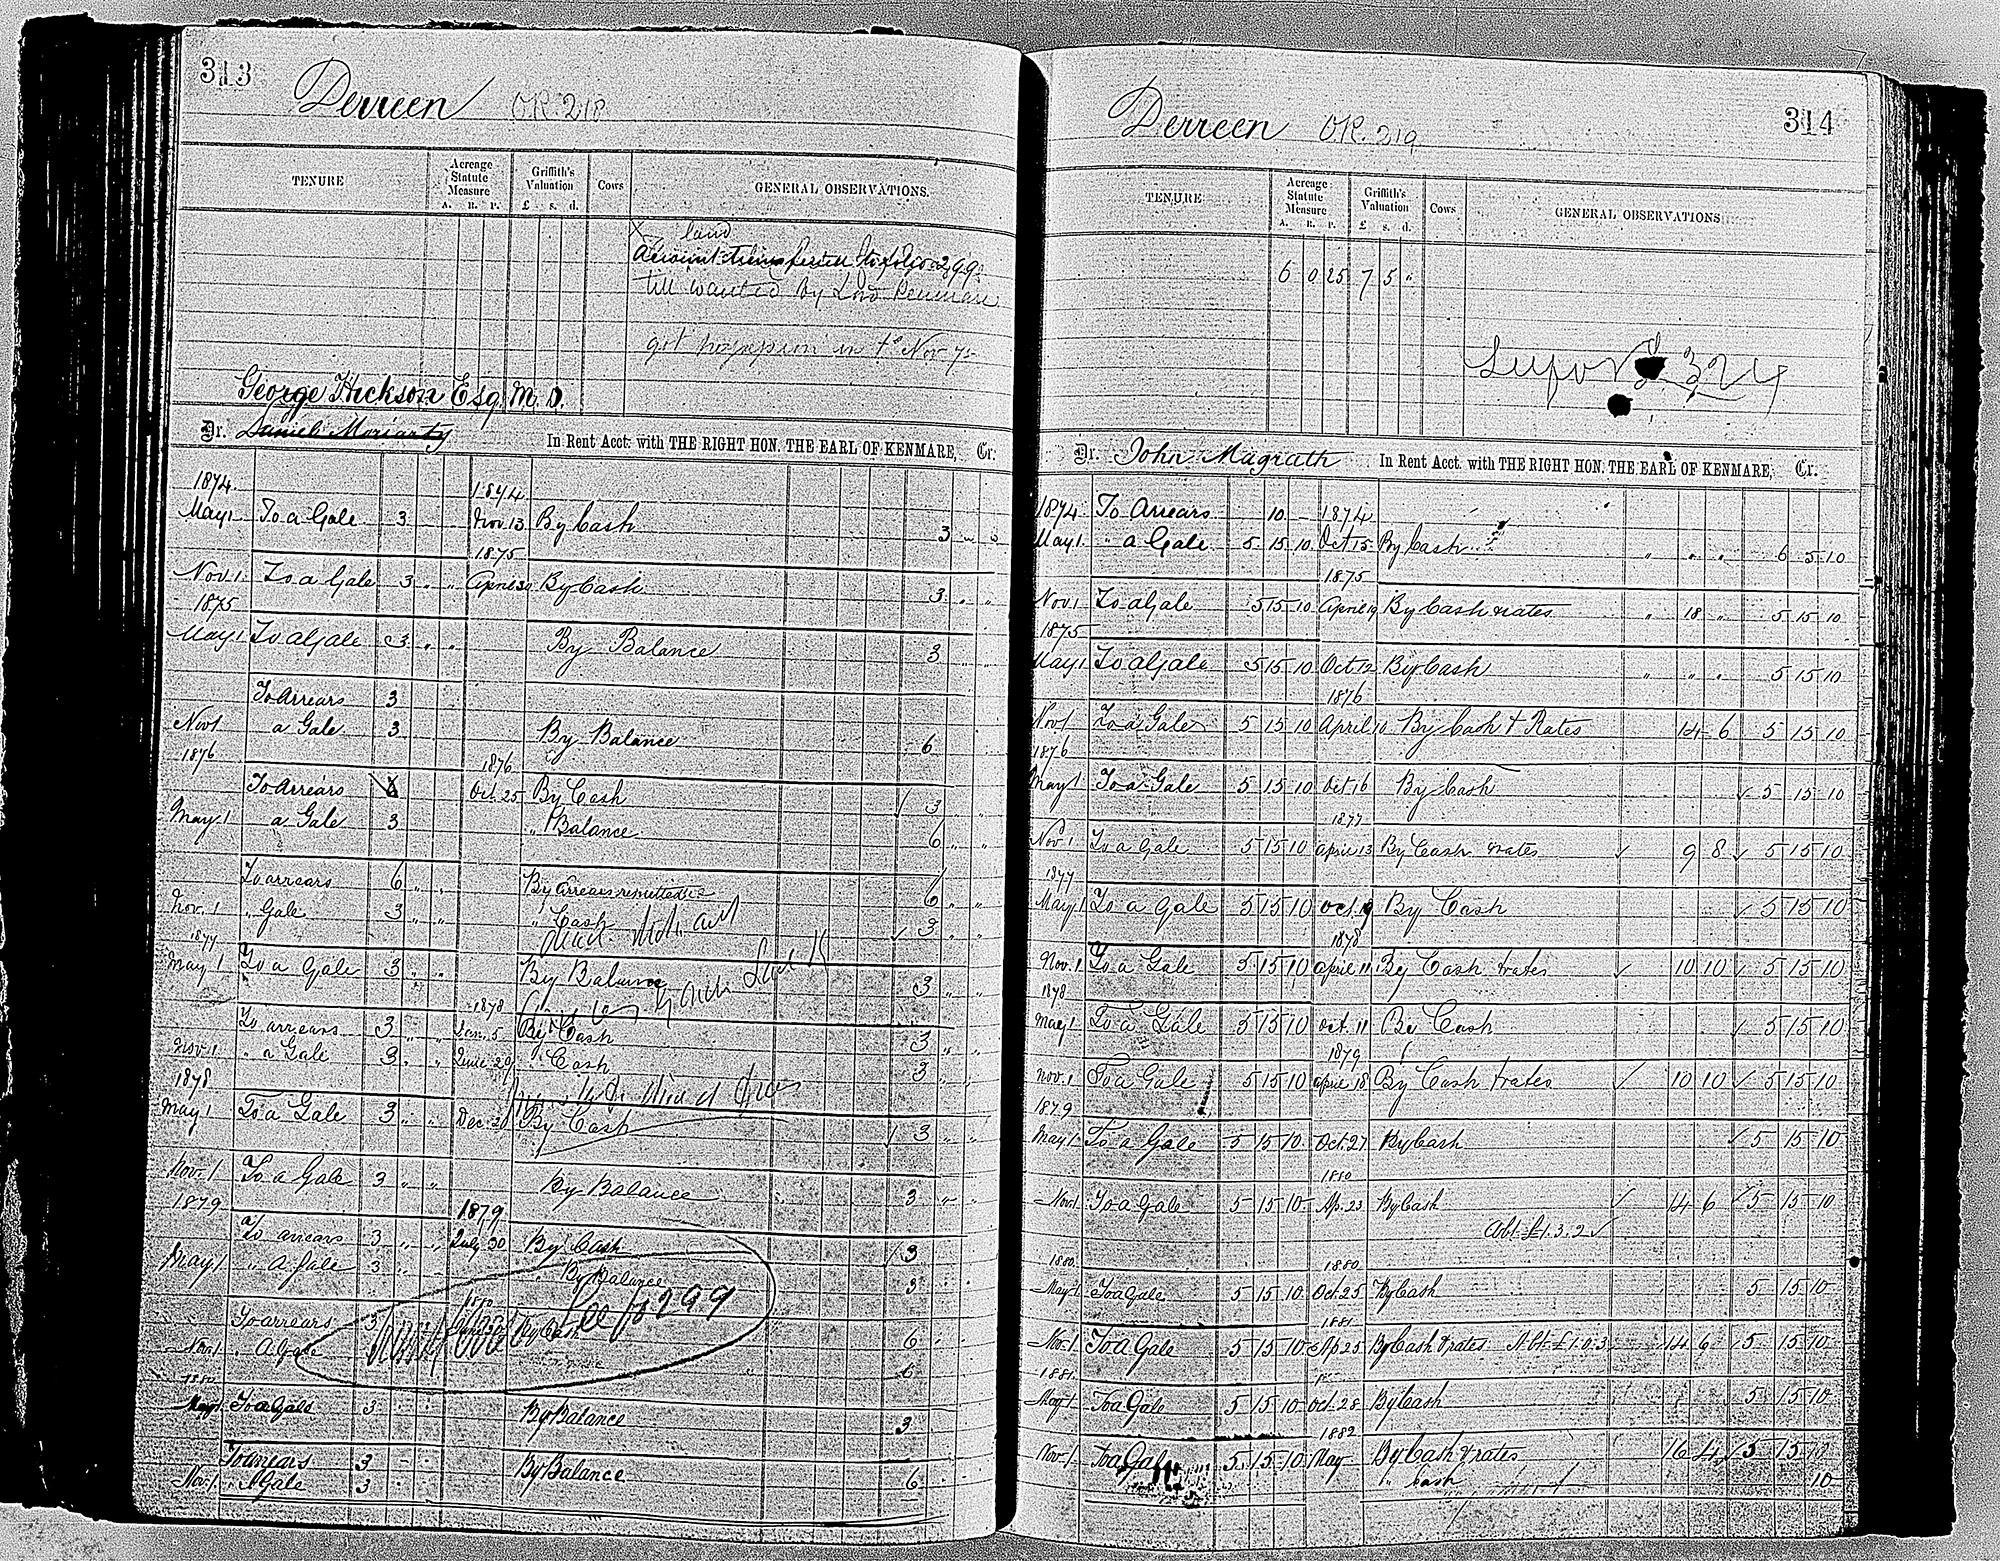 313
Derreen OR. 218
TENURE Acreage Statute Measure A. R. P. Griffith's Valuation £ s. d. Cows GENERAL OBSERVATIONS.
X land
Account transferred to folio 299
till wanted by Lord Kenmare
got possession in Nov
George Hickson Esq. M.D.
Dr. Daniel Moriarty In Rent Acct. with THE RIGHT HON. THE EARL OF KENMARE, Cr.
1874 1874
May 1 To a Gale 3 Nov. 13 By Cash 3 " "
1875
Nov. 1 To a Gale 3 " " April 30 By Cash 3 " "
1875
May 1 To a Gale 3 " " By Balance 3 " "
To Arrears 3
Nov 1 a Gale 3 By Balance 6
1876 1876
To Arrears Oct. 25 By Cash 3
May 1 a Gale 3 " Balance 6 " "
To arrears 6 " " By Arrears remitted 6 " "
Nov. 1 " Gale 3 " " " Cash 3 " "
1877
May 1 To a Gale 3 " " By Balance 3 " "
1878
To arrears 3 " " Jan. 5 By Cash 3 " "
Nov. 1 " a Gale 3 " " June 29 " Cash 3 " "
1878
May 1 To a Gale 3 " " Dec. 20 By Cash 3 " "
Nov. 1 To a Gale 3 " " By Balance 3 " "
1879 1879
To arrears 3 " " July 30 By Cash 3
May 1 " A Gale 3 " " " By Balance 3 " "
See fo 299
1880
To arrears 3 By Cash 6
Nov. 1 " A Gale 6
1880
May 1 To a Gale 3 By Balance 3
To arrears 3 By Balance 6
Nov. 1 " A Gale 3
314
Derreen OR. 219
TENURE Acreage Statute Measure A. R. P. Griffith's Valuation £ s. d. Cows GENERAL OBSERVATIONS
6 0 25 7 5 "
324
Dr. John Magrath In Rent Acct. with THE RIGHT HON. THE EARL OF KENMARE, Cr.
1874 To Arrears 10 - 1874
May 1. " a Gale 5 15 10 Oct 15 By Cash " " " 6 5 10
1875
Nov 1 To a Gale 5 15 10 April 19 By Cash & rates " 18 " 5 15 10
1875
May 1 To a Gale 5 15 10 Oct 12 By Cash " " " 5 15 10
1876
Nov 1 To a Gale 5 15 10 April 10 By Cash & Rates 14 6 5 15 10
1876
May 1 To a Gale 5 15 10 Oct 16 By Cash 5 15 10
1877
Nov. 1 To a Gale 5 15 10 April 13 By Cash & rates 9 8 5 15 10
1877
May 1 To a Gale 5 15 10 Oct. 19 By Cash 5 15 10
1878
Nov. 1 To a Gale 5 15 10 April 11 By Cash & rates 10 10 5 15 10
1878
May 1 To a Gale 5 15 10 Oct. 11 By Cash 5 15 10
1879
Nov. 1 To a Gale 5 15 10 April 18 By Cash & rates 10 10 5 15 10
1879
May 1 To a Gale 5 15 10 Oct. 27 By Cash 5 15 10
1880
Nov 1 To a Gale 5 15 10 Ap. 23 By Cash 14 6 5 15 10
Abt. £1.3.2
1880 1880
May 1 To a Gale 5 15 10 Oct. 25 By Cash 5 15 10
1881
Nov. 1 To a Gale 5 15 10 Ap 25 By Cash & rates Abt. £1.0.3 14 6 5 15 10
1881
May 1 To a Gale 5 15 10 Oct. 28 By Cash 5 15 10
1882
Nov. 1 To a Gale 5 15 10 May By Cash & rates 16 4 5 15 10
" Cash 10